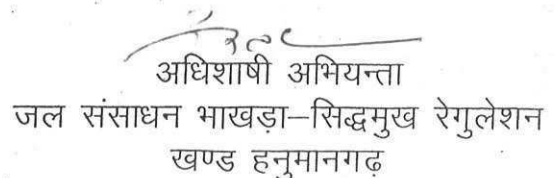 अधिशाषी अभियन्ता
जल संसाधन भाखड़ा–सिद्धमुख रेगुलेशन
खण्ड हनुमानगढ़